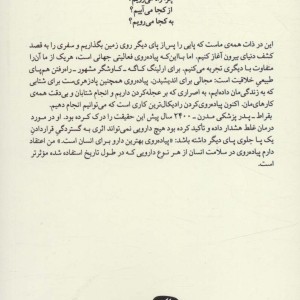 چرا راه می‌رویم؟
از کجا می‌آییم؟
به کجا می‌رویم؟
این در ذات همه‌ی ماست که پایی را پس از پای دیگر روی زمین بگذاریم و سفری را به قصد
کشف دنیای بیرون آغاز کنیم. اما با این‌که پیاده‌روی فعالیتی جهانی است، هریک از ما آن را
متفاوت با دیگری تجربه می‌کنیم. برای ارلینگ کاگه ـ کاوشگر مشهور ـ راه‌رفتن هم‌پای
طبیعیِ خلاقیت است: مجالی برای اندیشیدن. پیاده‌روی همچنین پادزهری‌ست برای شتابی
که به زندگی‌مان داده‌ایم، به اصراری که بر عجله‌کردن داریم و انجام شتابان و بی‌دقت همه‌ی
کارهای‌مان. اکنون پیاده‌روی‌کردن رادیکال‌ترین کاری است که می‌توانیم انجام دهیم.
بقراط ـ پدر پزشکی مدرن ـ ۲۴۰۰ سال پیش این حقیقت را درک کرده بود. او در مورد
درمان غلط هشدار داده و تأکید کرده بود هیچ دارویی نمی‌تواند اثری به گستردگی قراردادنِ
یک پا جلوی پای دیگر داشته باشد: «پیاده‌روی بهترین دارو برای انسان است.» من اعتقاد
دارم پیاده‌روی در سلامت انسان از هر نوع دارویی که در طول تاریخ استفاده شده مؤثرتر
است.